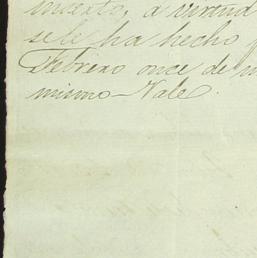 muerto, a virtud
se le ha hecho
Febrero once de m
mismo—Vale.